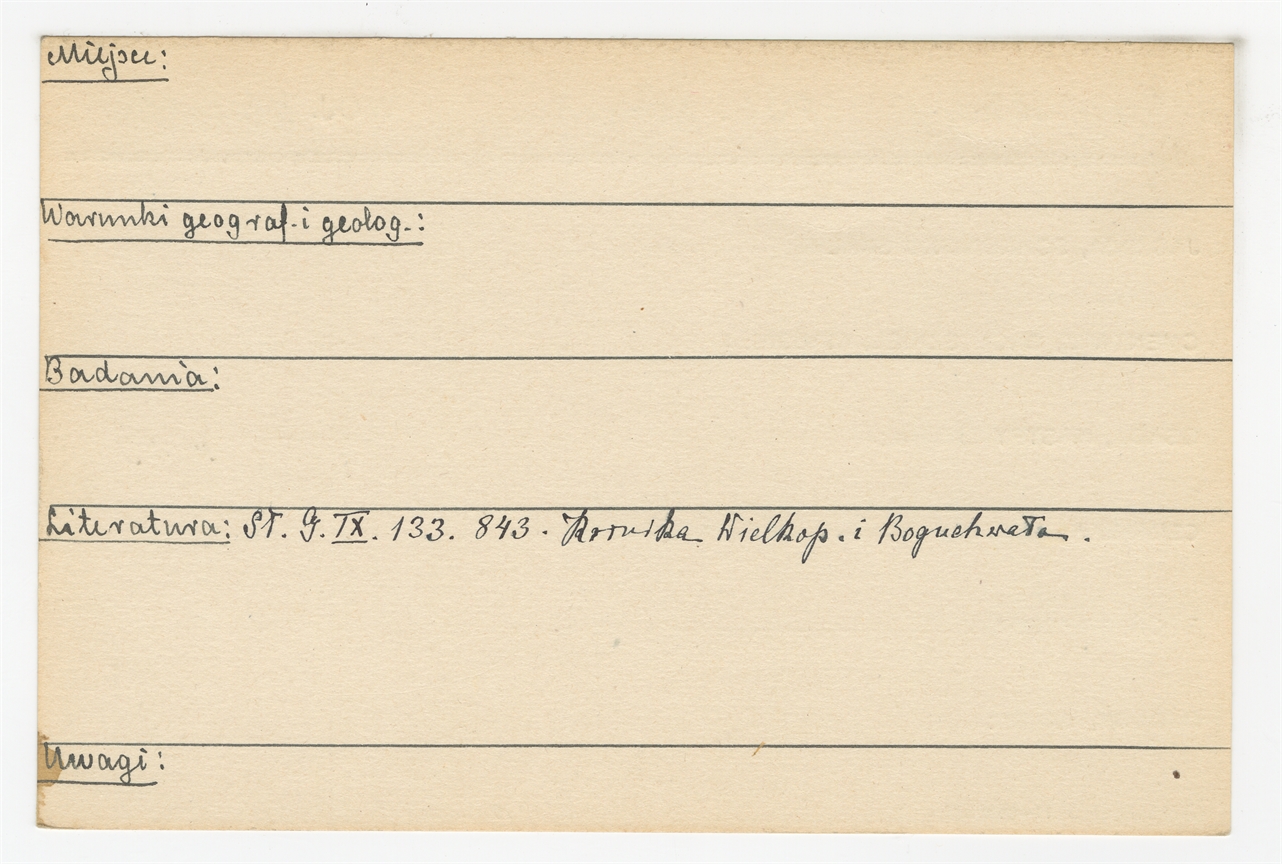 Miejsce:
Warunki geograf. i geolog.:
Badania:
Literatura: Sł. G. IX. 133. 843. Kronika Wielkop. i Boguchwała.
Uwagi: